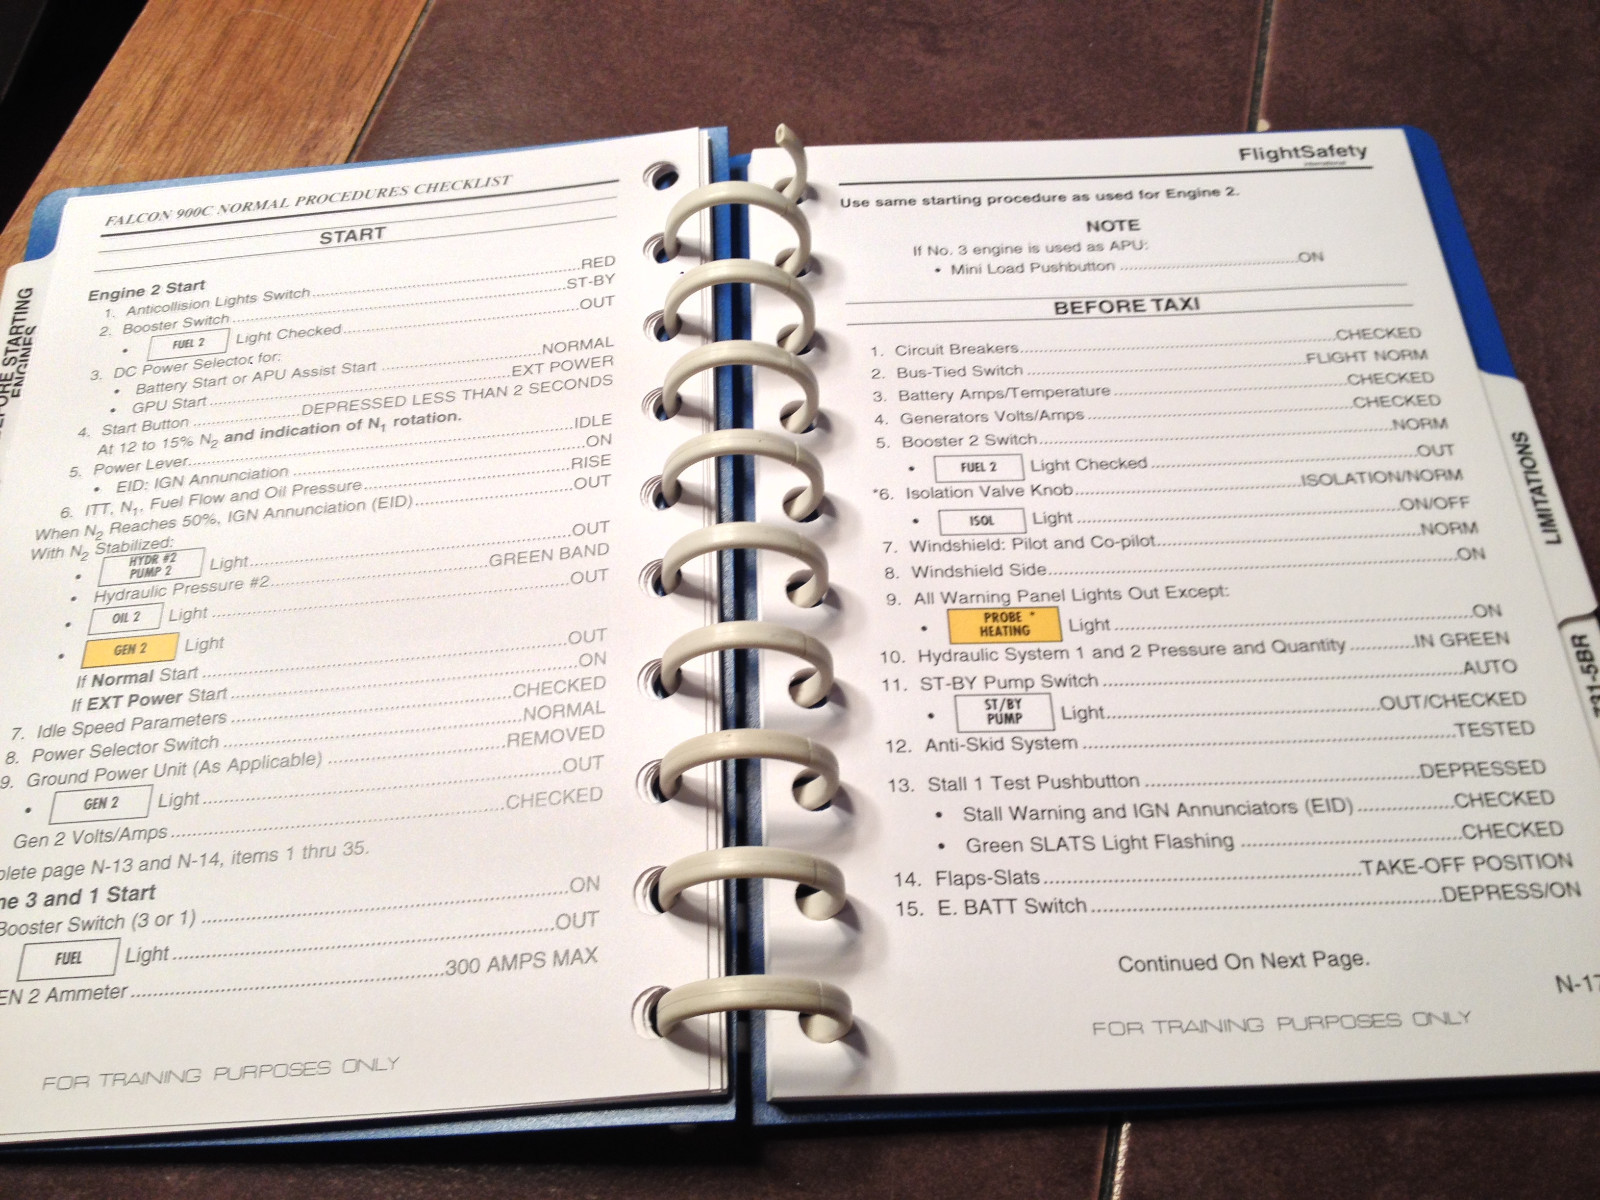 FALCON 900C NORMAL PROCEDURES CHECKLIST
START
Engine 2 Start
1. Anticollision Lights Switch RED
2. Booster Switch ST-BY
• FUEL 2 Light Checked OUT
3. DC Power Selector for:
• Battery Start or APU Assist Start NORMAL
• GPU Start EXT POWER
4. Start Button DEPRESSED LESS THAN 2 SECONDS
At 12 to 15% N2 and indication of N1 rotation.
5. Power Lever IDLE
• EID: IGN Annunciation ON
6. ITT, N1, Fuel Flow and Oil Pressure RISE
When N2 Reaches 50%, IGN Annunciation (EID) OUT
With N2 Stabilized:
• HYDR #2 PUMP 2 Light OUT
• Hydraulic Pressure #2 GREEN BAND
• OIL 2 Light OUT
• GEN 2 Light
If Normal Start OUT
If EXT Power Start ON
7. Idle Speed Parameters CHECKED
8. Power Selector Switch NORMAL
9. Ground Power Unit (As Applicable) REMOVED
• GEN 2 Light OUT
Gen 2 Volts/Amps CHECKED
plete page N-13 and N-14, items 1 thru 35.
ne 3 and 1 Start
Booster Switch (3 or 1) ON
FUEL Light OUT
EN 2 Ammeter 300 AMPS MAX
FOR TRAINING PURPOSES ONLY
STARTING
ENGINES
FlightSafety
international
Use same starting procedure as used for Engine 2.
NOTE
If No. 3 engine is used as APU:
• Mini Load Pushbutton ON
BEFORE TAXI
1. Circuit Breakers CHECKED
2. Bus-Tied Switch FLIGHT NORM
3. Battery Amps/Temperature CHECKED
4. Generators Volts/Amps CHECKED
5. Booster 2 Switch NORM
• FUEL 2 Light Checked OUT
*6. Isolation Valve Knob ISOLATION/NORM
• ISOL Light ON/OFF
7. Windshield: Pilot and Co-pilot NORM
8. Windshield Side ON
9. All Warning Panel Lights Out Except:
• PROBE * HEATING Light ON
10. Hydraulic System 1 and 2 Pressure and Quantity IN GREEN
11. ST-BY Pump Switch AUTO
• ST/BY PUMP Light OUT/CHECKED
12. Anti-Skid System TESTED
13. Stall 1 Test Pushbutton DEPRESSED
• Stall Warning and IGN Annunciators (EID) CHECKED
• Green SLATS Light Flashing CHECKED
14. Flaps-Slats TAKE-OFF POSITION
15. E. BATT Switch DEPRESS/ON
Continued On Next Page.
N-17
FOR TRAINING PURPOSES ONLY
LIMITATIONS